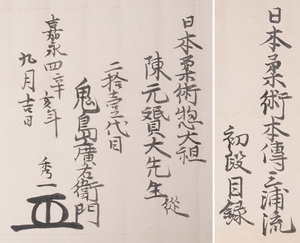 日本柔術本傳三浦流
初段目録
日本柔術惣大祖
陳元贇大先生従
二拾壹代目
鬼島廣右衛門
秀一
嘉永四辛亥年
九月吉日